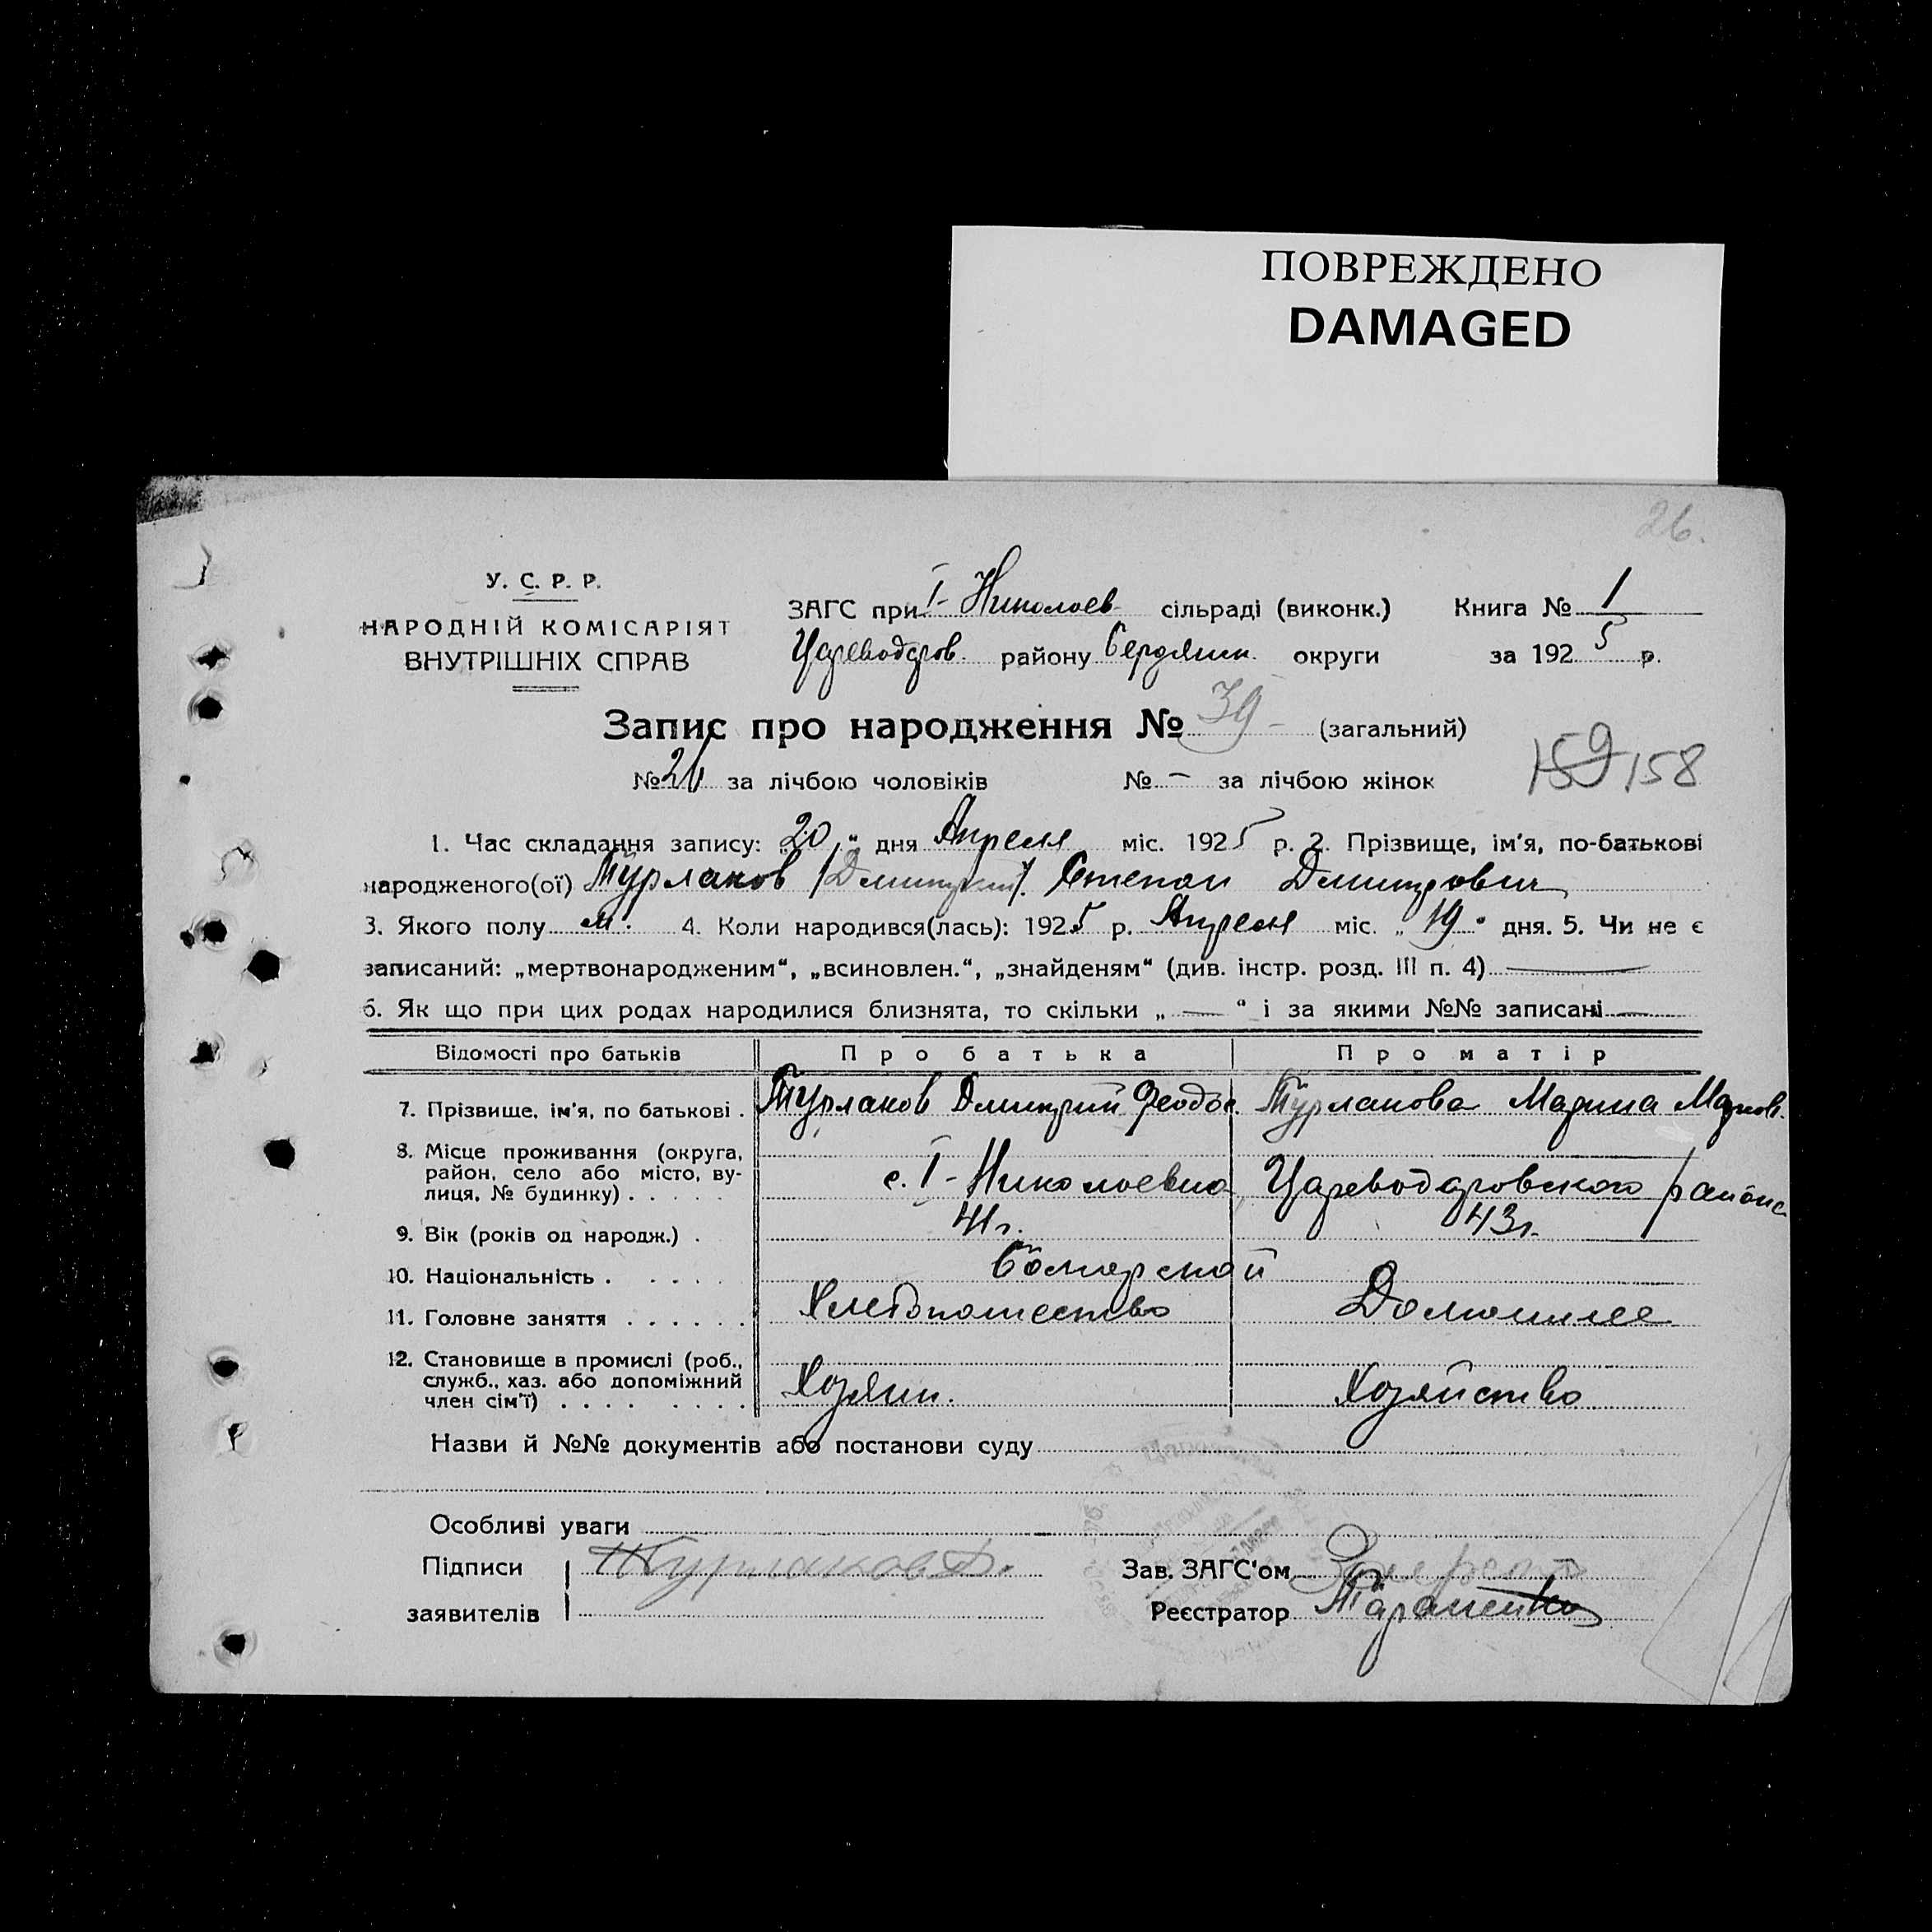 ПОВРЕЖДЕНО
DAMAGED
26.
У. С. Р. Р.
НАРОДНІЙ КОМІСАРІЯТ
ВНУТРІШНІХ СПРАВ
ЗАГС при I-Николаев сільраді (виконк.) Книга № 1
Цареводаров. району Бердянск. округи за 1925 р.
Запис про народження № 39 (загальний)
№ 26 за лічбою чоловіків № – за лічбою жінок
159 158
1. Час складання запису: „20“ дня Апреля міс. 1925 р. 2. Прізвище, ім'я, по-батькові
народженого(ої) Турлаков (Дмитрий) Степан Дмитрович
3. Якого полу м. 4. Коли народився(лась): 1925 р. Апреля міс. „19“ дня. 5. Чи не є
записаний: „мертвонародженим“, „всиновлен.“, „знайденям“ (див. інстр. розд. III п. 4) —
6. Як що при цих родах народилися близнята, то скільки „—“ і за якими №№ записані —
Відомості про батьків Про батька Про матір
7. Прізвище, ім'я, по батькові . Турлаков Дмитрий Феодос. Турлакова Марина Марков.
8. Місце проживання (округа,
район, село або місто, ву-
лиця, № будинку) . . . . . с. I-Николаевка Цареводаровского района
9. Вік (років од народж.) . 41г. 43г.
10. Національність . . . . . Болгарской
11. Головне заняття . . . . . . Хлебопашество Домашнее
12. Становище в промислі (роб.,
служб., хаз. або допоміжний
член сім'ї) . . . . . . . . Хозяин. Хозяйство
Назви й №№ документів або постанови суду
Особливі уваги
Підписи Турлаков Д. Зав. ЗАГС'ом
заявителів Реєстратор Тараненко